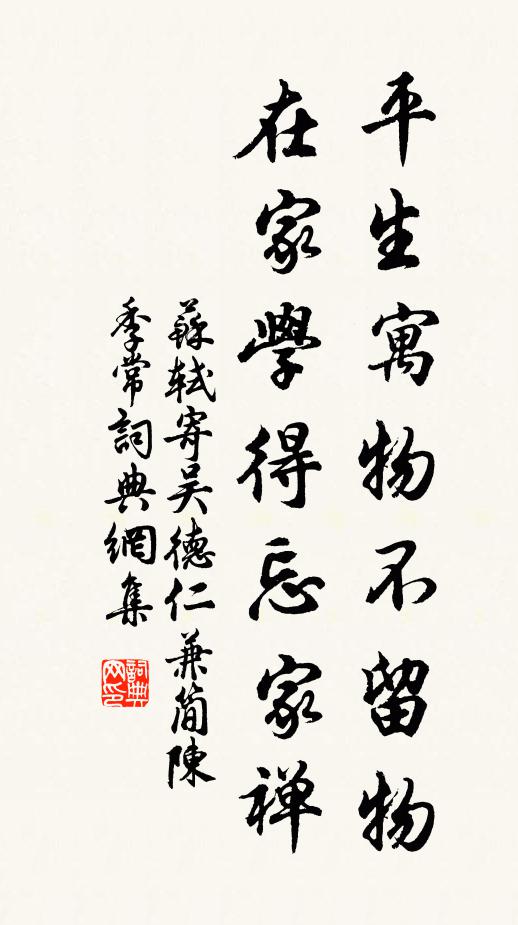 平生寓物不留物
在家學得忘家禅
蘇軾寄吴德仁兼简陳
季常詞典網集
詞典网印